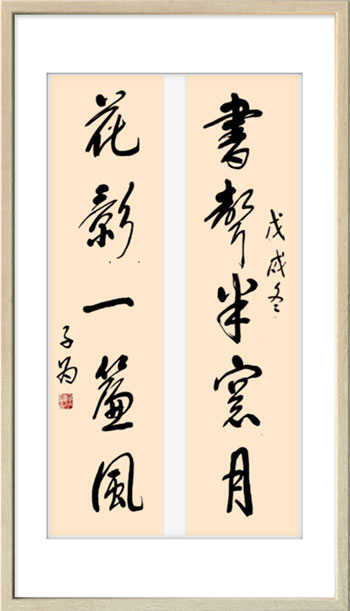 書聲半窗月
戊戌冬
花影一簾風
子為